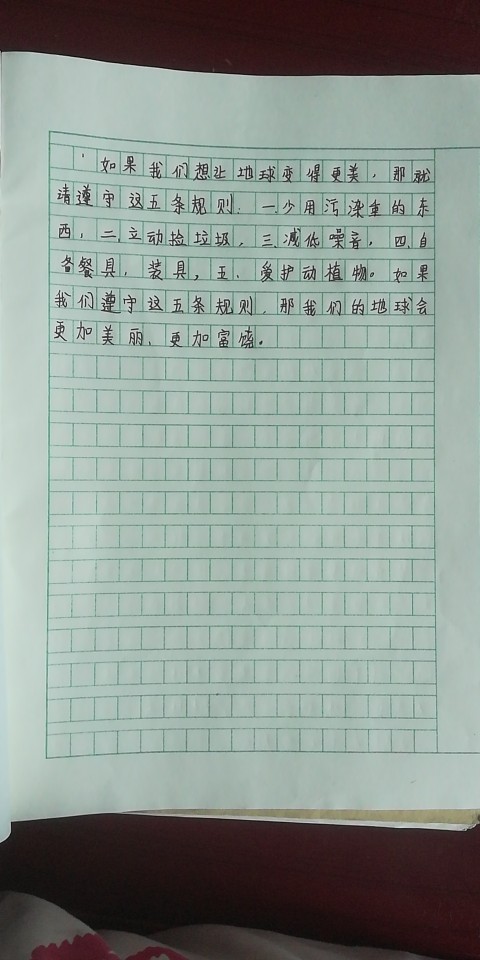 如果我们想让地球变得更美，那就
请遵守这五条规则：一.少用污染重的东
西，二.立动捡垃圾，三.减低噪音，四.自
备餐具，装具，五、爱护动植物。如果
我们遵守这五条规则，那我们的地球会
更加美丽、更加富饶。